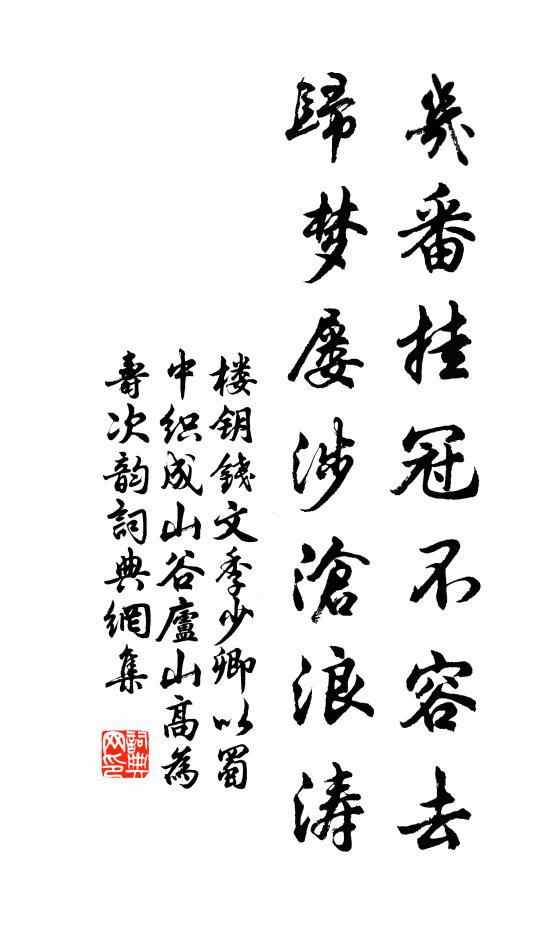 幾番挂冠不容去
歸梦屡涉滄浪涛
楼钥錢文季少卿以蜀
中织成山谷廬山高為
壽次韵詞典網集
詞典网印